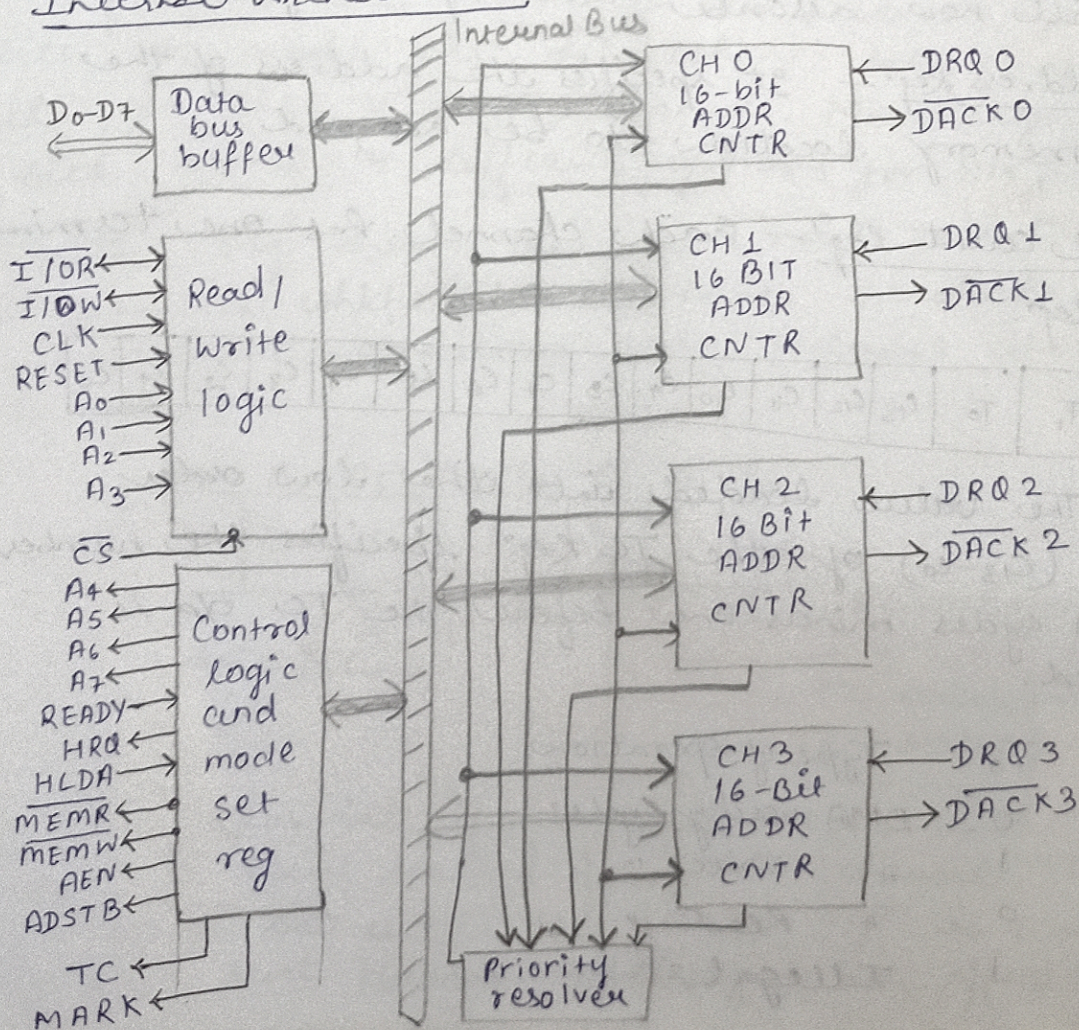 Internal
Internal Bus
D0-D7
Data
bus
buffer
I/OR
I/OW
CLK
RESET
A0
A1
A2
A3
CS
Read/
write
logic
A4
A5
A6
A7
READY
HRQ
HLDA
MEMR
MEMW
AEN
ADSTB
TC
MARK
Control
logic
and
mode
set
reg
CH 0
16-bit
ADDR
CNTR
DRQ 0
DACK 0
CH 1
16 BIT
ADDR
CNTR
DRQ 1
DACK 1
CH 2
16 Bit
ADDR
CNTR
DRQ 2
DACK 2
CH 3
16-Bit
ADDR
CNTR
DRQ 3
DACK 3
Priority
resolver